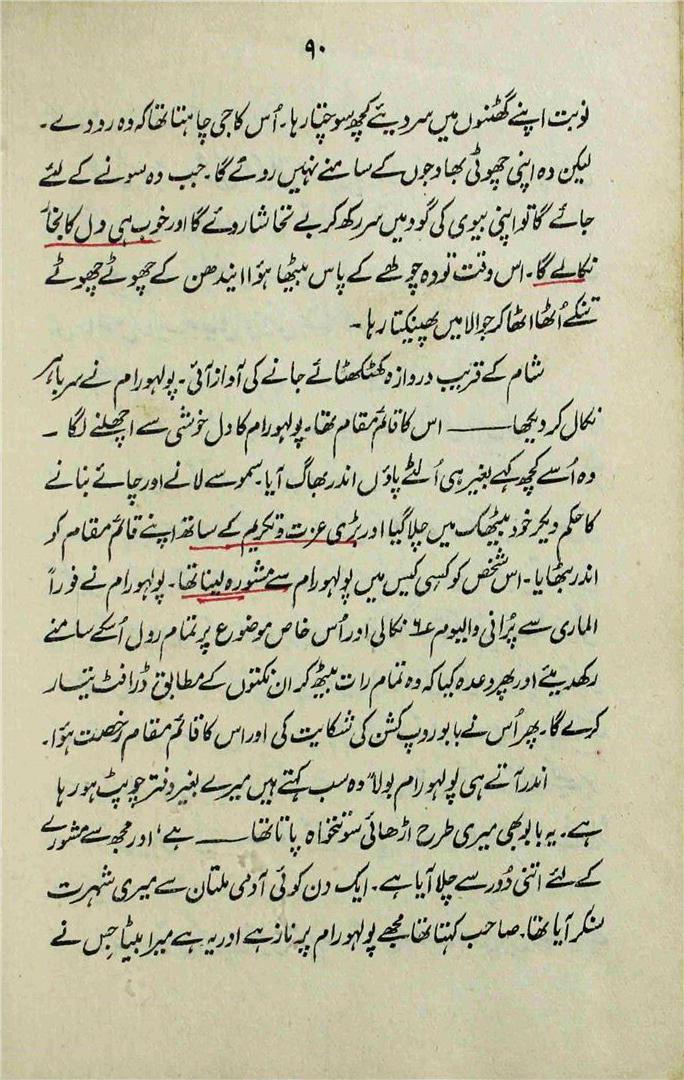 ۹۰
نوبت اپنے گھٹنوں میں سر دیئے کچھ سوچتا رہا۔ اُس کا جی چاہتا تھا کہ وہ رو دے۔
لیکن وہ اپنی چھوٹی بھاوجوں کے سامنے نہیں روئے گا۔ جب وہ سونے کے لئے
جائے گا تو اپنی بیوی کی گود میں سر رکھ کر بے تحاشا روئے گا اور خوب ہی دل کا بخار
نکالے گا۔ اس وقت تو وہ چولھے کے پاس بیٹھا ہؤا ایندھن کے چھوٹے چھوٹے
تنکے اُٹھا اٹھا کر جوالا میں پھینکتا رہا۔
شام کے قریب دروازہ کھٹکھٹائے جانے کی آواز آئی۔ پولہورام نے سر باہر
نکال کر دیکھا ——— اس کا قائم مقام تھا۔ پولہورام کا دل خوشی سے اچھلنے لگا۔
وہ اُسے کچھ کہے بغیر ہی اُلٹے پاؤں اندر بھاگ آیا۔ سموسے لانے اور چائے بنانے
کا حکم دیکر خود بیٹھک میں چلا گیا اور بڑی عزت و تکریم کے ساتھ اپنے قائم مقام کو
اندر بٹھایا۔ اس شخص کو کسی کیس میں پولہورام سے مشورہ لینا تھا۔ پولہورام نے فوراً
الماری سے پُرانی والیوم ۶۷ نکالی اور اُس خاص موضوع پر تمام رول اُسکے سامنے
رکھدیئے اور پھر وعدہ کیا کہ وہ تمام رات بیٹھ کر ان نکتوں کے مطابق ڈرافٹ تیار
کرے گا۔ پھر اُس نے بابو روپ کشن کی شکایت کی اور اس کا قائم مقام رخصت ہؤا۔
اندر آتے ہی پولہورام بولا "وہ سب کہتے ہیں میرے بغیر دفتر چوپٹ ہو رہا
ہے۔ یہ بابو بھی میری طرح اڑھائی سو تنخواہ پاتا تھا ——— ہے' اور مجھ سے مشورے
کے لئے اتنی دُور سے چلا آیا ہے۔ ایک دن کوئی آدمی ملتان سے میری شہرت
سنکر آیا تھا۔ صاحب کہتا تھا مجھے پولہورام پر ناز ہے اور یہ ہے میرا بیٹا جس نے